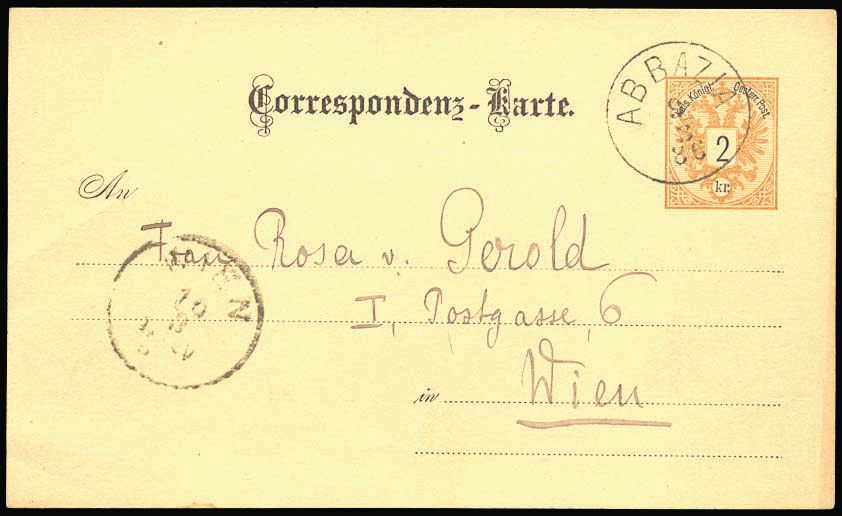 Correspondenz-Karte.
ABBAZIA
Kais. Königl. Oesterr. Post.
2
kr.
An
Frau Rosa v. Gerold
WIEN
I, Postgasse 6
in Wien